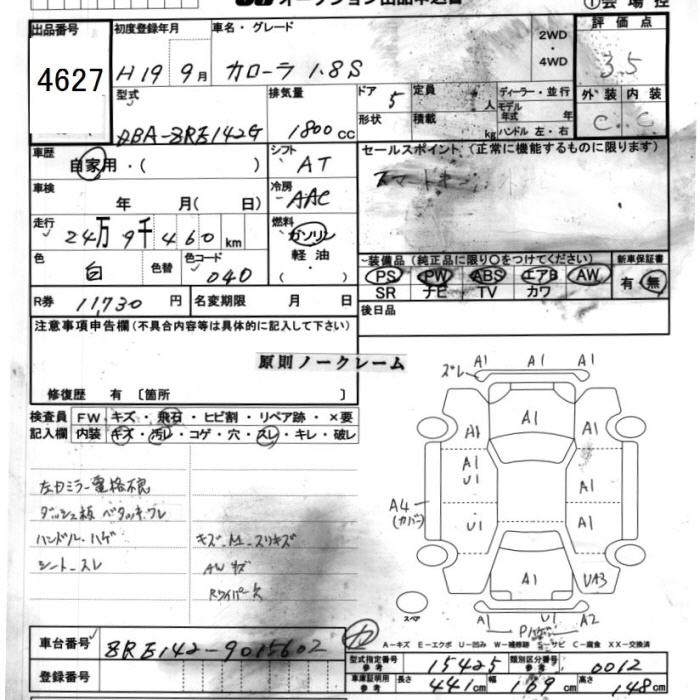 出品番号
4627
初度登録年月
H19 9月
車名・グレード
カローラ 1.8S
2WD
・
4WD
評価点
3.5
型式
DBA-ZRE142G
排気量
1800 cc
ドア
5
形状
定員
人
積載
kg
ディーラー・並行
モデル年式 年
ハンドル 左・右
外装 内装
C C
車歴
自家用・( )
シフト
AT
セールスポイント (正常に機能するものに限ります)
車検
年 月( 日)
冷房
AAC
走行
24万9千460 km
燃料
ガソリン
軽油
・( )
色
白
色替
色コード
040
装備品 (純正品に限り○をつけてください)
PS PW ABS エアB AW
SR ナビ TV カワ
新車保証書
有・無
R券 11,730 円
名変期限 月 日
後日品
注意事項申告欄 (不具合内容等は具体的に記入して下さい)
原則ノークレーム
修復歴 有 〔箇所 〕
検査員
記入欄
FW キズ・飛石・ヒビ割・リペア跡・×要
内装 キズ・汚レ・コゲ・穴・スレ・キレ・破レ
左カミラー電格不良
ダッシュ板 ベタツキ.ワレ
ハンドル ハゲ
シート スレ
キズ.M.スリキズ
AW キズ
Rワイパー欠
ズレ A1 A1 A1
A1 A1 A1
A1 A1
U1
A4
(カバー)
U1 A1
A1 UA3
スペア
U1 A2
A－キズ E－エクボ U－凹み W－補修跡 S－サビ C－腐食 XX－交換済
車台番号
ZRE142-9015602
登録番号
型式指定番号
参考
15425
類別区分番号
参考
0012
車庫証明用
参考
長さ 441cm 幅 169cm 高さ 148cm